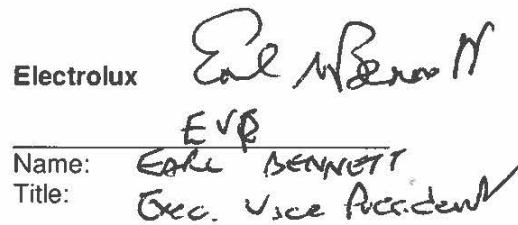 Electrolux Earl W Bennett
EVP
Name: EARL BENNETT
Title: Exec. Vice President